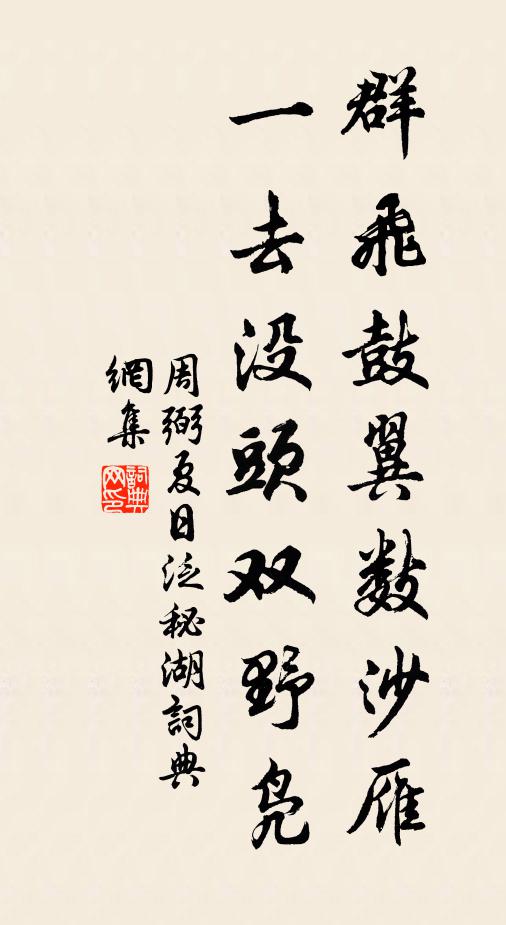 群飛鼓翼数沙雁
一去没頭双野凫
周弼夏日泛秘湖詞典
網集
詞典
网印